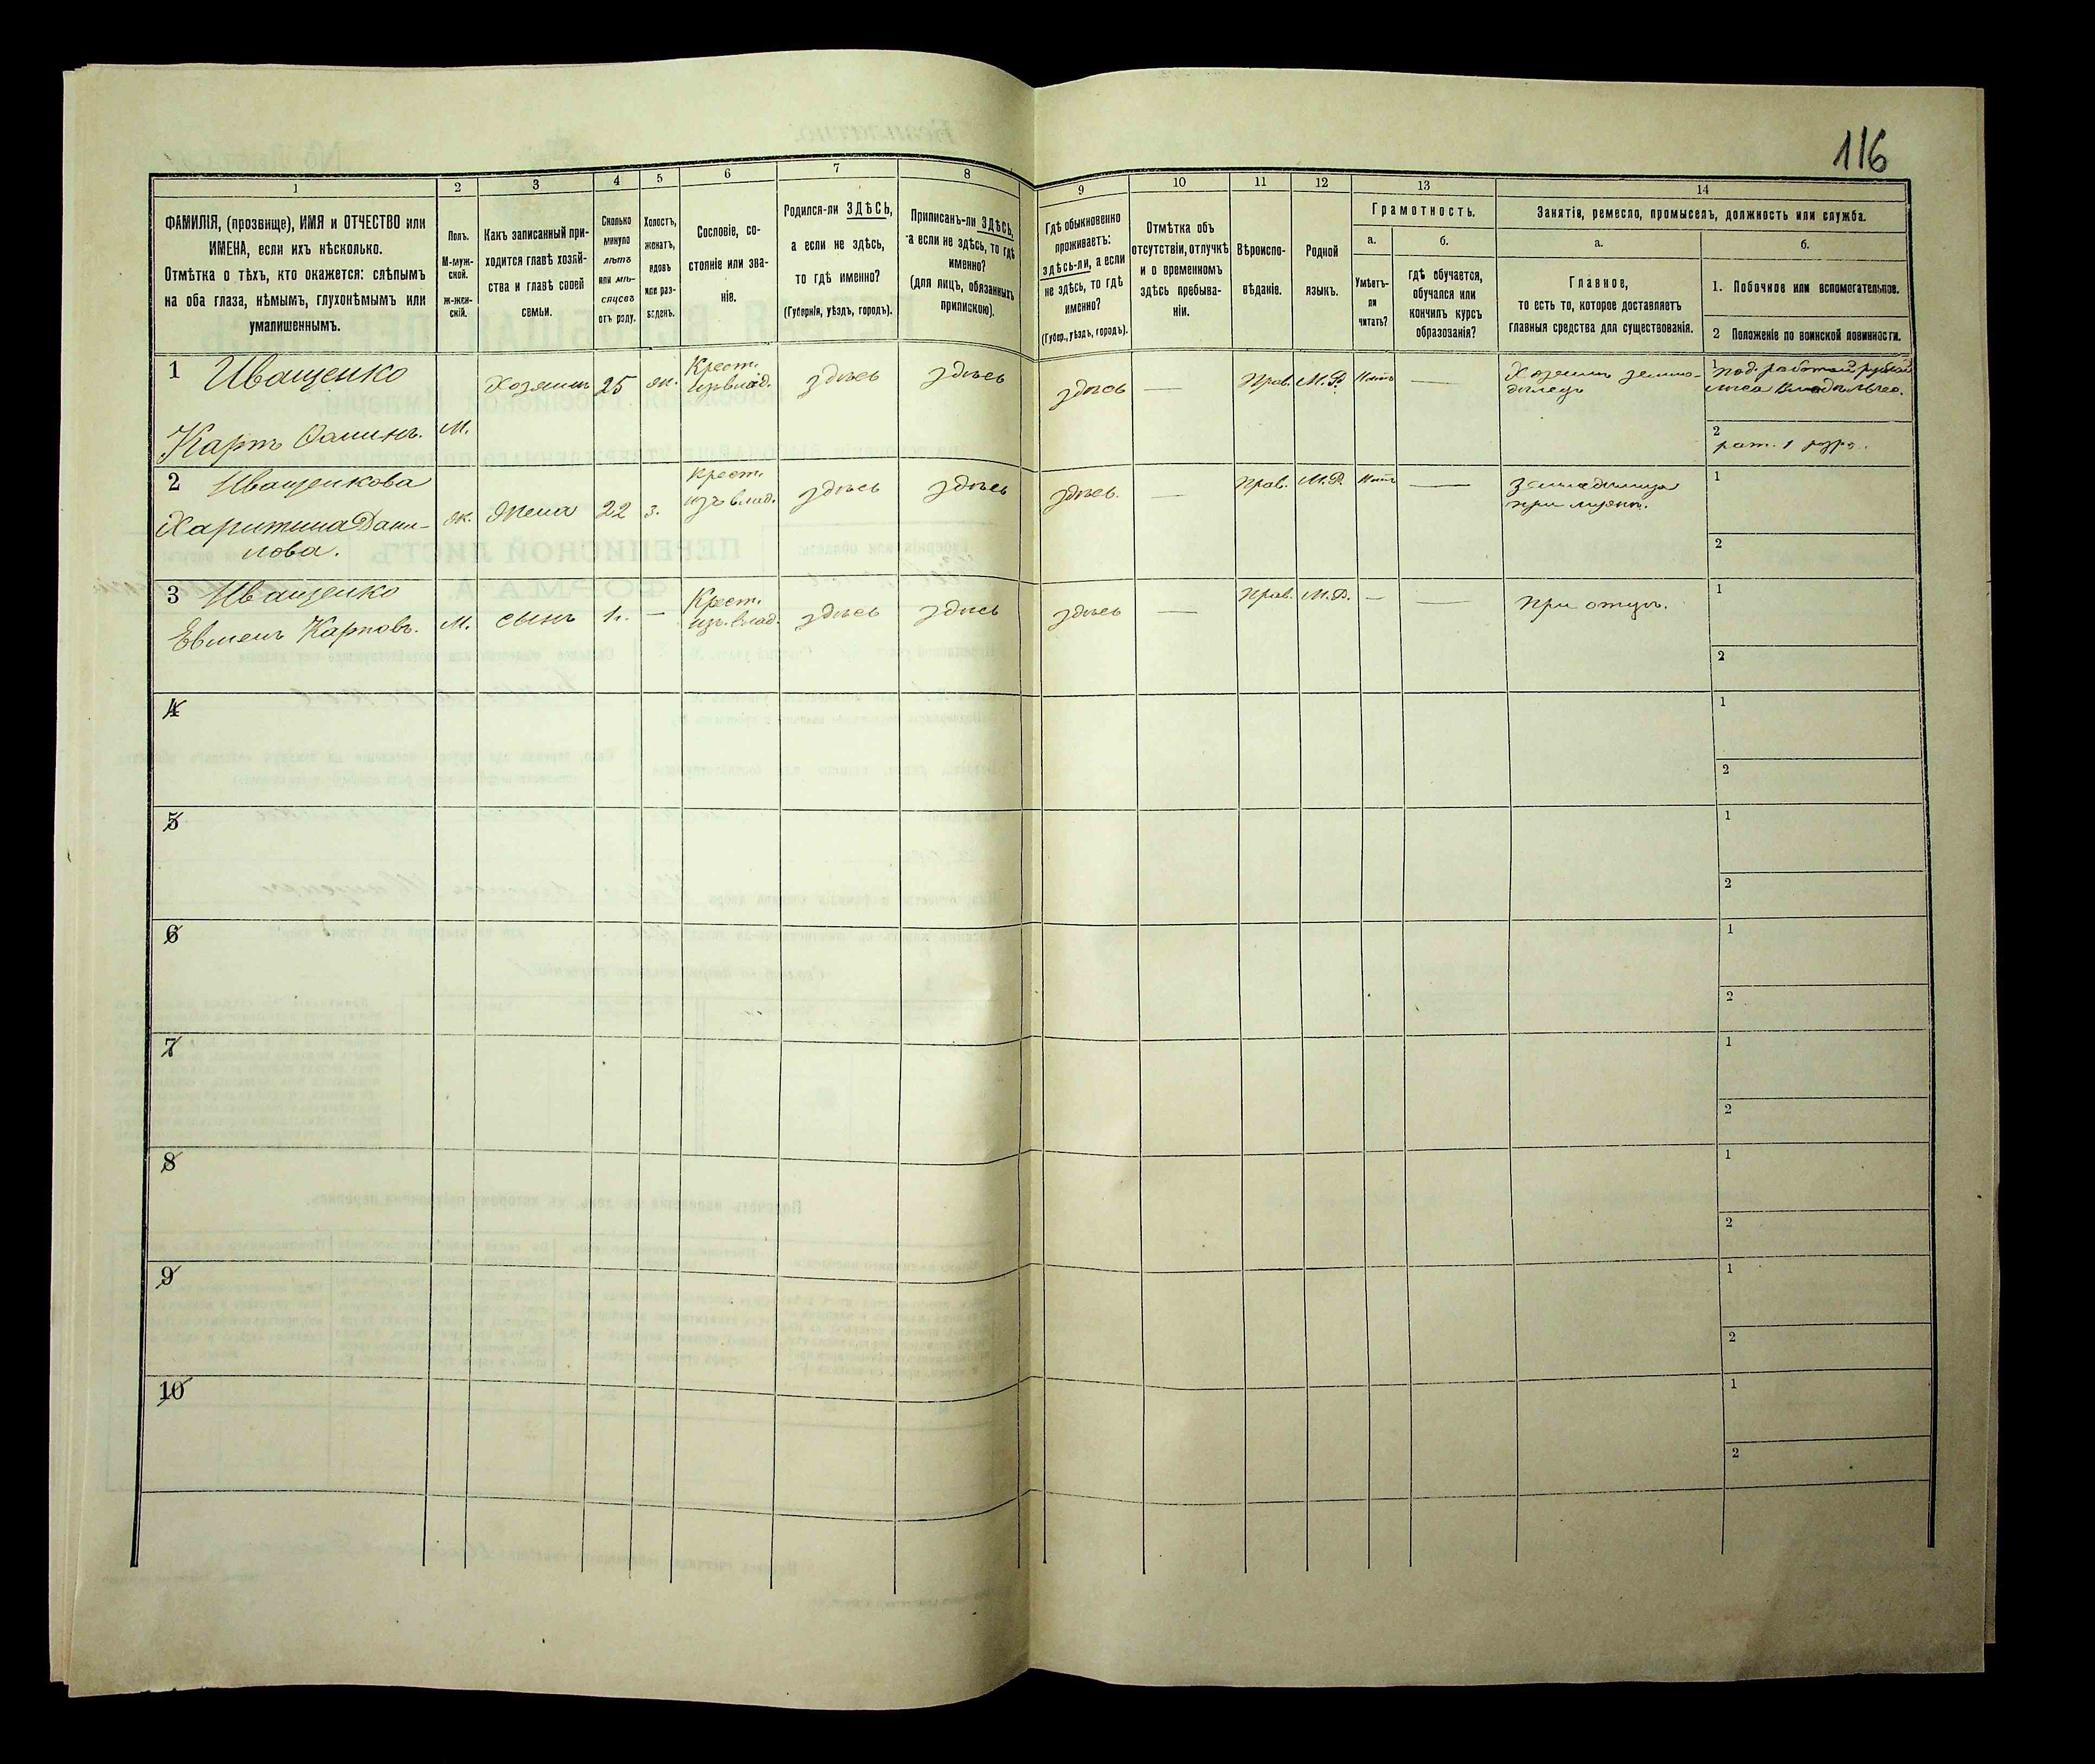 116
1
2
3
4
5
6
7
8
9
10
11
12
13
14
ФАМИЛІЯ, (прозвище), ИМЯ и ОТЧЕСТВО или
ИМЕНА, если ихъ нѣсколько.
Отмѣтка о тѣхъ, кто окажется: слѣпымъ
на оба глаза, нѣмымъ, глухонѣмымъ или
умалишеннымъ.
Полъ.
М-муж-
ской.
ж-жен-
скій.
Какъ записанный при-
ходится главѣ хозяй-
ства и главѣ своей
семьи.
Сколько
минуло
лѣтъ
или мѣ-
сяцевъ
отъ роду.
Холостъ,
женатъ,
вдовъ
или раз-
веденъ.
Сословіе, со-
стояніе или зва-
ніе.
Родился-ли ЗДѢСЬ,
а если не здѣсь,
то гдѣ именно?
(Губернія, уѣздъ, городъ).
Приписанъ-ли ЗДѢСЬ,
а если не здѣсь, то гдѣ
именно?
(для лицъ, обязанныхъ
припискою).
Гдѣ обыкновенно
проживаетъ:
здѣсь-ли, а если
не здѣсь, то гдѣ
именно?
(Губер., уѣздъ, городъ).
Отмѣтка объ
отсутствіи, отлучкѣ
и о временномъ
здѣсь пребыва-
ніи.
Вѣроиспо-
вѣданіе.
Родной
языкъ.
Грамотность.
а.
Умѣетъ-
ли
читать?
б.
гдѣ обучается,
обучался или
кончилъ курсъ
образованія?
Занятіе, ремесло, промыселъ, должность или служба.
а.
Главное,
то есть то, которое доставляетъ
главныя средства для существованія.
б.
1. Побочное или вспомогательное.
2 Положеніе по воинской повинности.
1 Иващенко
Карпъ Ѳоминъ.
М.
Хозяинъ
25
ж.
Крест.
изъ влад.
здѣсь
здѣсь
здѣсь
—
Прав.
М.Р.
Нѣтъ
—
Хозяинъ земле-
дѣлецъ
1
2
рат. 1 разр.
2 Иващенкова
Харитина Дани-
лова.
ж.
Жена
22
з.
Крест.
изъ влад.
здѣсь
здѣсь
здѣсь.
—
Прав.
М.Р.
Нѣтъ
—
при мужѣ.
1
2
3 Иващенко
Евменъ Карповъ.
М.
сынъ
1 г.
—
Крест.
изъ влад.
здѣсь
здѣсь
здѣсь
—
Прав.
М.Р.
—
—
при отцѣ.
1
2
4
1
2
5
1
2
6
1
2
7
1
2
8
1
2
9
1
2
10
1
2